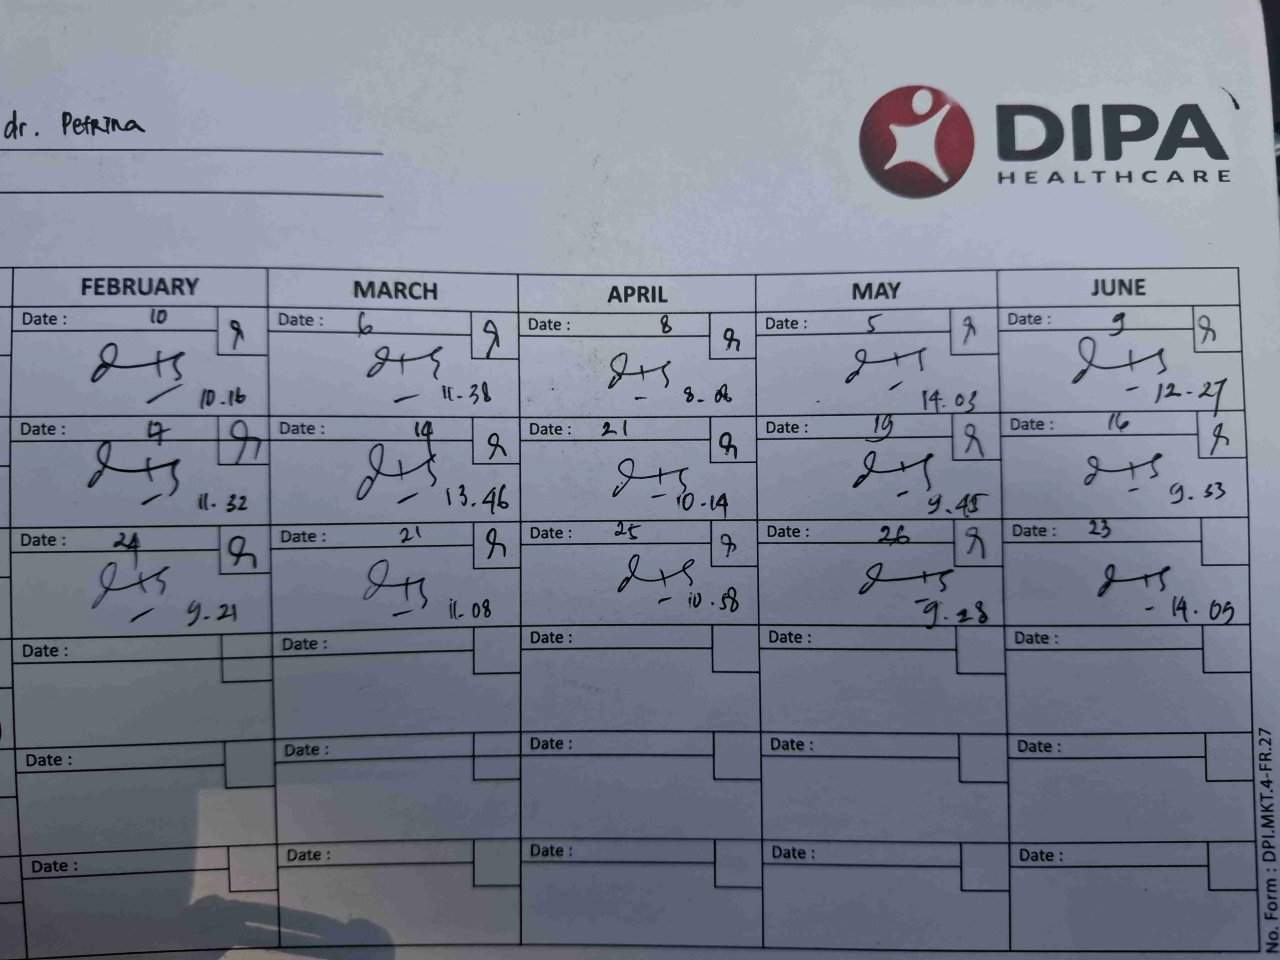 dr. Petrina
DIPA
HEALTHCARE
FEBRUARY MARCH APRIL MAY JUNE
Date : 10 Date : 6 Date : 8 Date : 5 Date : 9
10.16 11-38 8-06 14.03 12-27
Date : 17 Date : 14 Date : 21 Date : 19 Date : 16
11.32 13.46 10-14 9.45 9.33
Date : 24 Date : 21 Date : 25 Date : 26 Date : 23
9.21 11-08 10.58 9.28 14.05
Date : Date : Date : Date : Date :
Date : Date : Date : Date : Date :
Date : Date : Date : Date : Date :
No. Form : DPI.MKT.4-FR.27